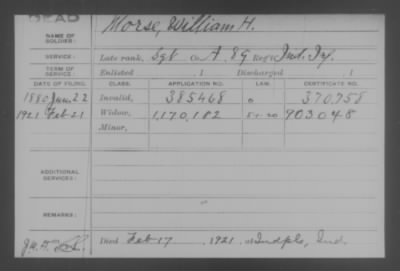 DEAD
NAME OF SOLDIER: Morse, William H.
SERVICE: Late rank, Sgt Co. A, 89 Reg't Ind. Inf.
TERM OF SERVICE: Enlisted 1 Discharged 1
DATE OF FILING. CLASS. APPLICATION NO. LAW. CERTIFICATE NO.
1880 Jun. 22 Invalid, 385468 370,758
1921 Feb 21 Widow, 1,170,182 5-1-20 903048
Minor,
ADDITIONAL SERVICES:
REMARKS:
Died Feb 17, 1921, at Indpls, Ind.